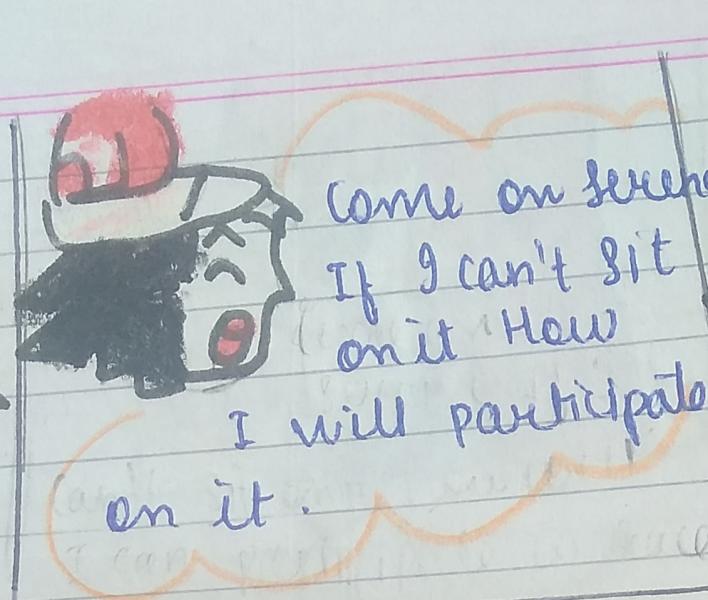 Come on
If I can't sit
on it How
I will participate
on it.